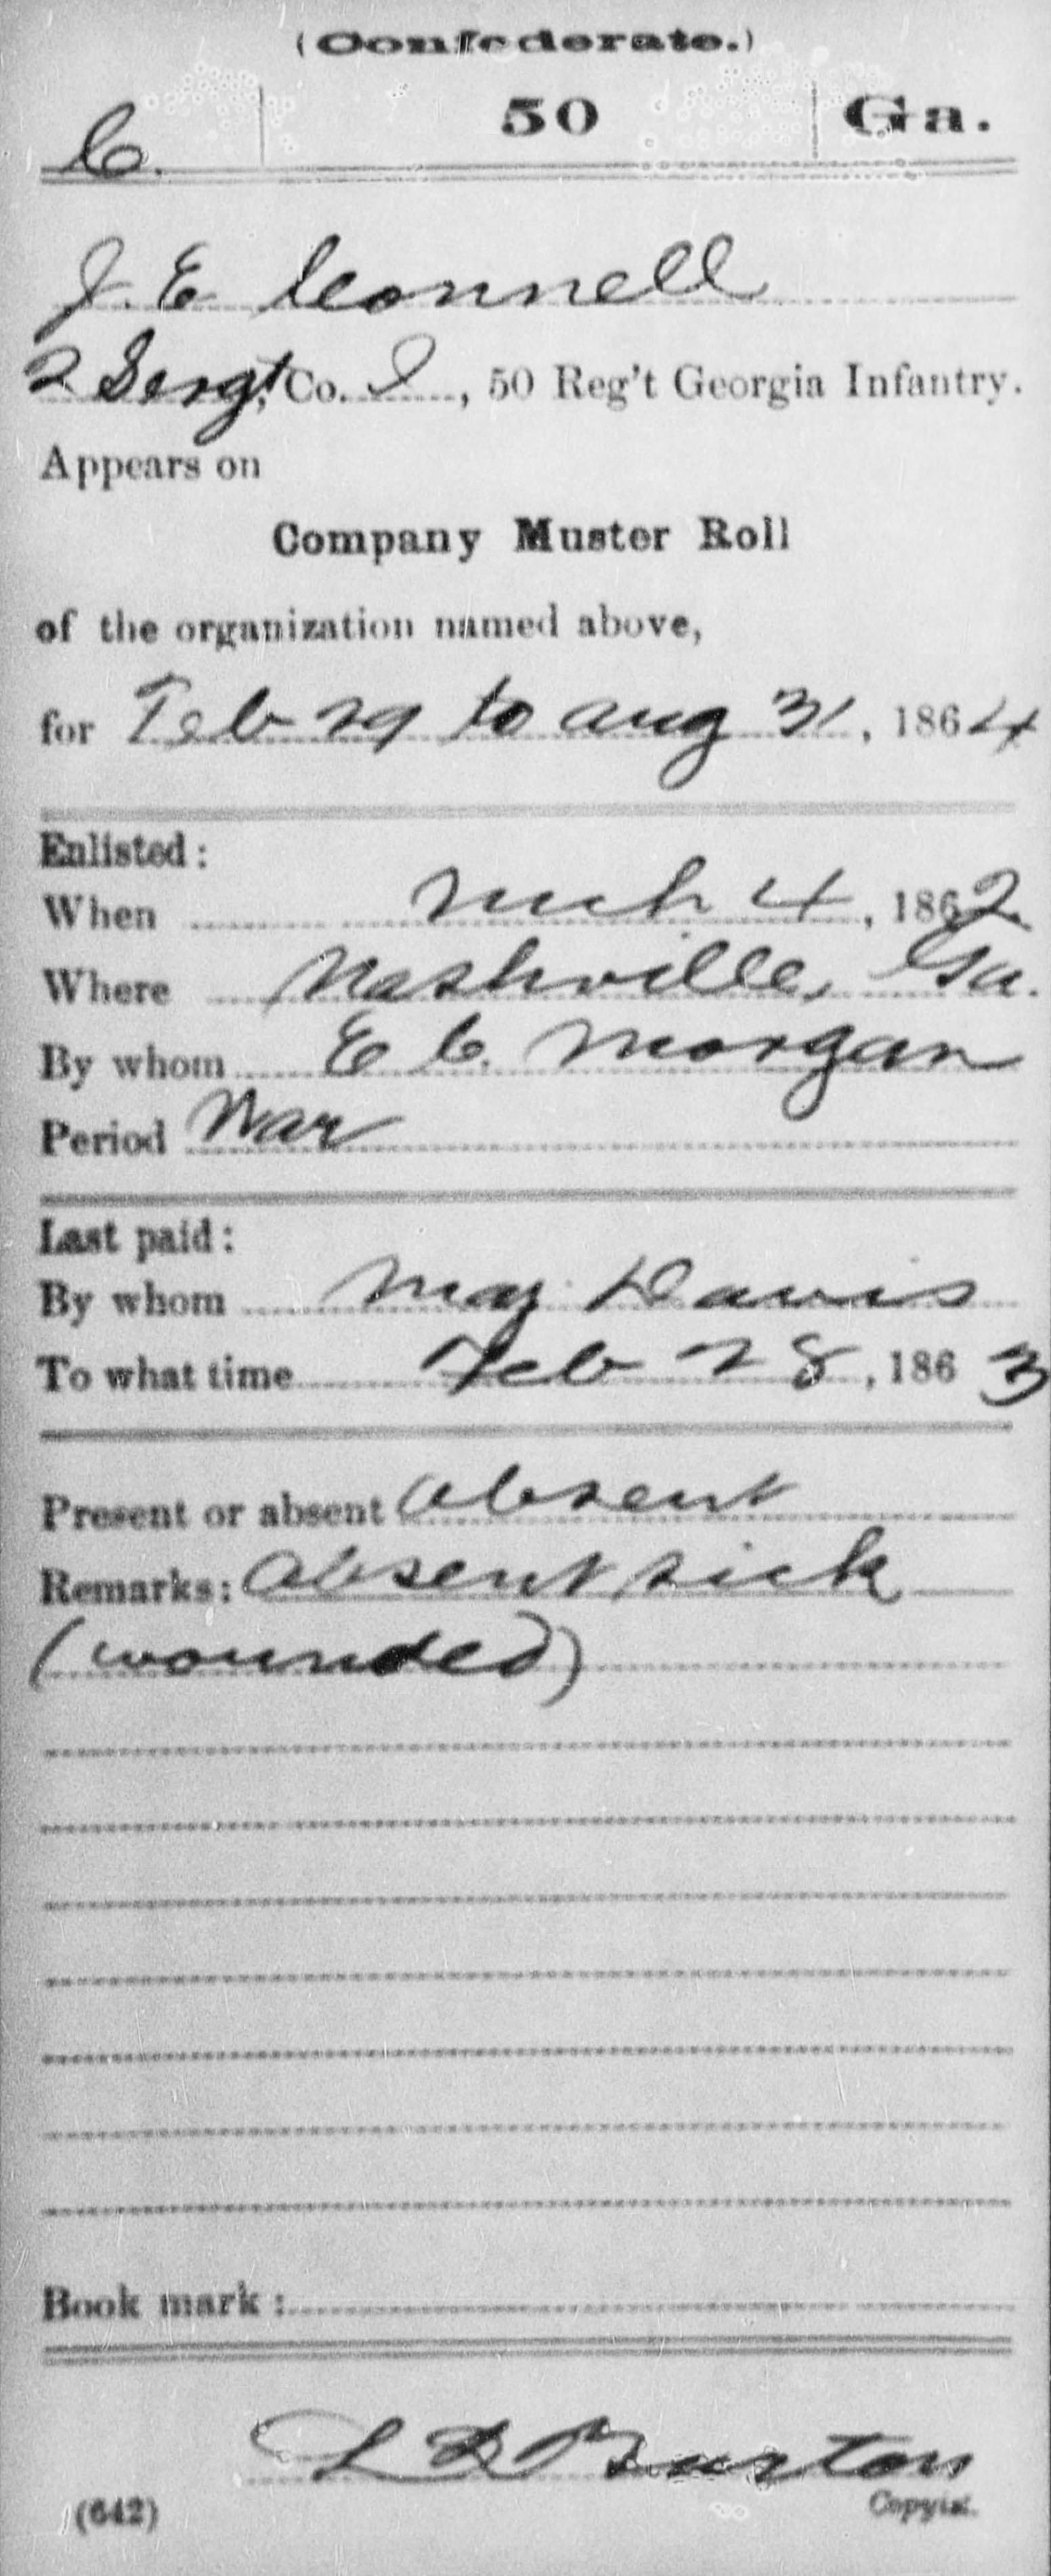 (Confederate.)
C. 50 Ga.
J. E. Connell
2 Sergt, Co. I, 50 Reg't Georgia Infantry.
Appears on
Company Muster Roll
of the organization named above,
for Feb 29 to Aug 31, 1864
Enlisted:
When Mch 4, 1862
Where Nashville, Ga.
By whom E. C. Morgan
Period War
Last paid:
By whom Maj Davis
To what time Feb 28, 1863
Present or absent Absent
Remarks: Absent sick
(wounded)
Book mark:
L D Burton
(642) Copyist.